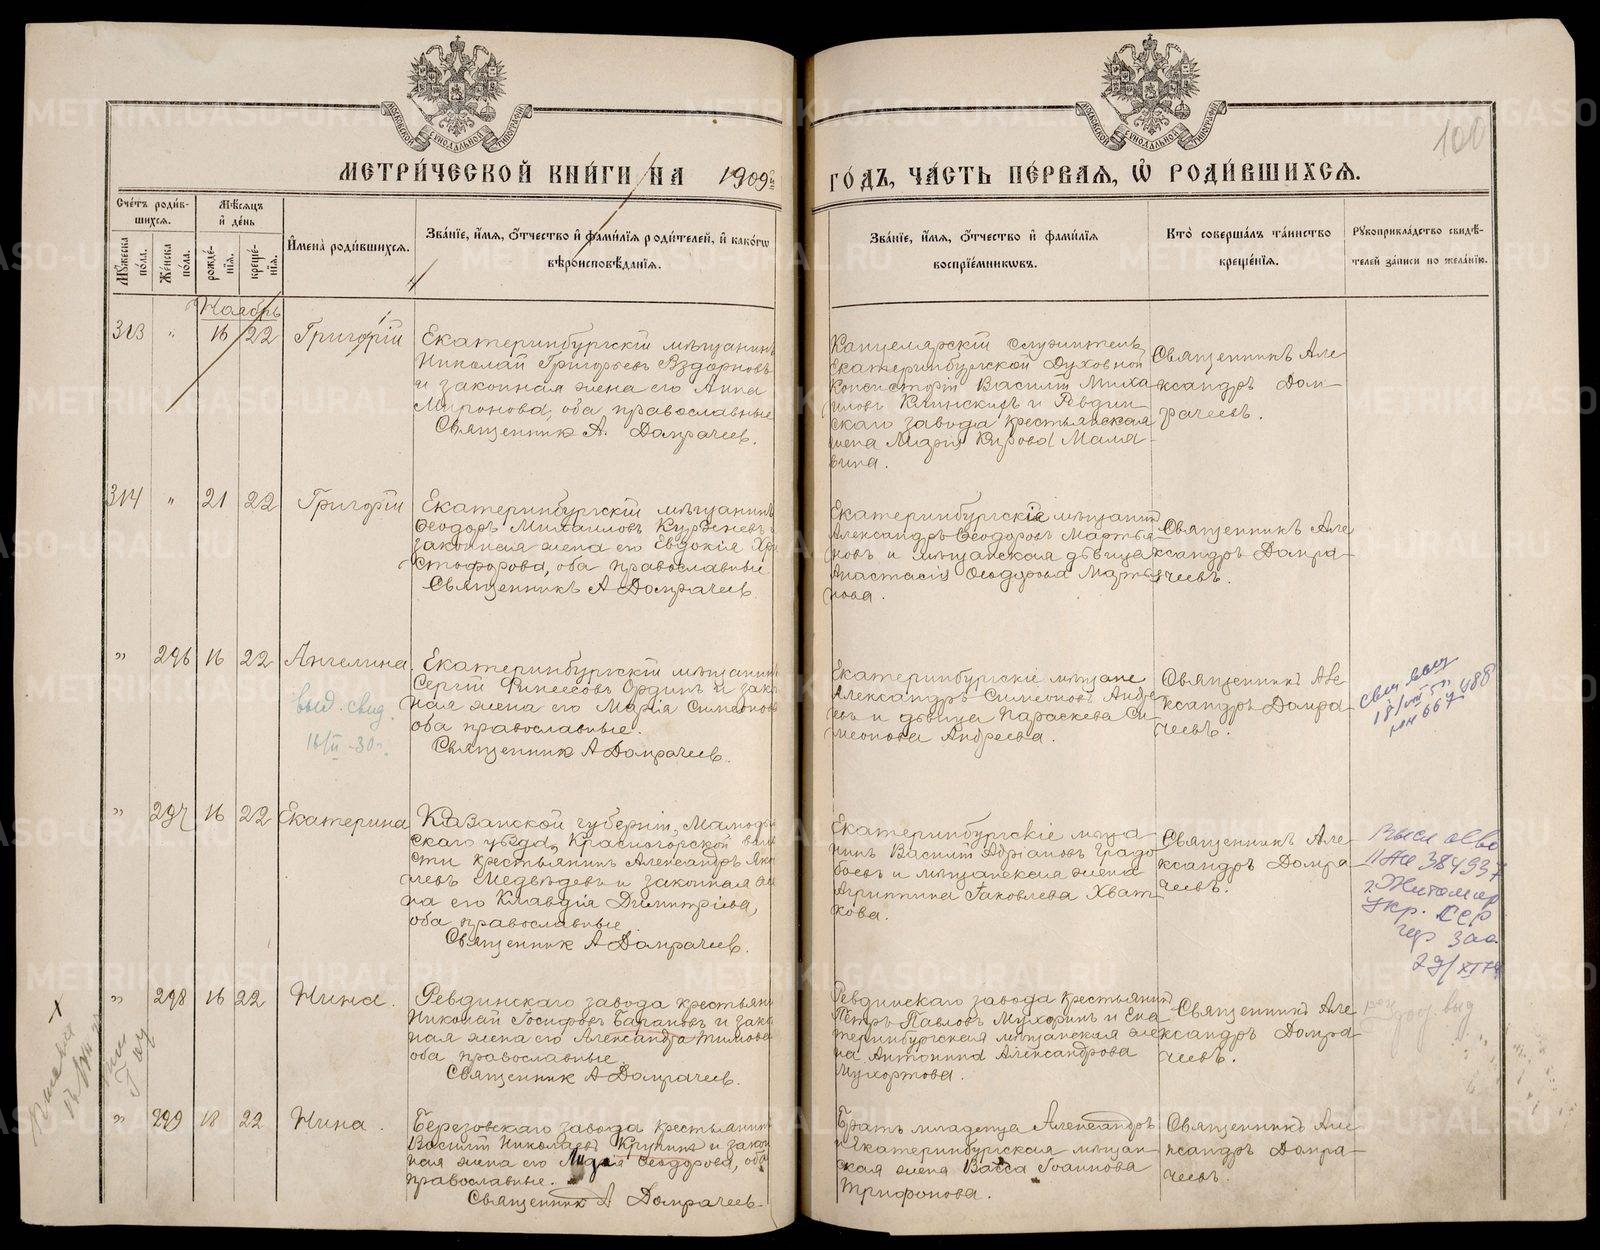 МЕТРИ́ЧЕСКОЙ КНИ́ГИ НА 1909й ГО́ДЪ, ЧА́СТЬ ПЕ́РВАЯ, Ѽ РОДИ́ВШИХСЯ.
100
Сче́тъ роди́в-
шихся.
Мѣ́сяцъ
и҆ де́нь
Му́жеска по́ла.
Же́нска по́ла.
рожде́-
нїя.
креще́-
нїя.
И҆мена̀ роди́вшихся.
Зва́нїе, и҆́мя, ѻ҆́тчество и҆ фами́лїя роди́телей, и҆ како́гѡ
вѣроисповѣ́данїя.
Зва́нїе, и҆́мя, ѻ҆́тчество и҆ фами́лїя
воспрїе́мникѡвъ.
Кто̀ соверша́лъ та́инство
креще́нїя.
Рꙋкоприкла́дство свидѣ́-
телей за́писи по жела́нїю.
Ноябрь
313 " 16 22 Григорій
Екатеринбургскій мѣщанинъ
Николай Григорьевъ Вздорновъ
и законная жена его Анна
Миронова, оба православные
Священникъ А. Домрачеев.
Канцелярскій служитель
Екатеринбургской Духовной
Консисторіи Василій Миха-
иловъ Клинскихъ и Ревдин-
скаго завода крестьянская
жена Марія Кирова Мама-
вина.
Священникъ Але-
ксандръ Дом-
рачеевъ.
314 " 21 22 Григорій
Екатеринбургскій мѣщанинъ
Ѳеодоръ Михаиловъ Курженевъ
законная жена его Евдокія Хри
стофорова, оба православные
Священникъ А Домрачеев.
Екатеринбургскіе мѣщанинъ
Александръ Ѳеодоровъ Мартья-
новъ и мѣщанская дѣвица
Анастасія Ѳеодорова Мартья-
нова.
Священникъ Але
ксандръ Домра-
чеевъ.
" 296 16 22 Ангелина
выд. свид.
16/II-30г.
Екатеринбургскій мѣщанинъ
Сергій Финеесовъ Ординъ и зако
ная жена его Марія Симеонов
оба православные.
Священникъ А Домрачеев.
Екатеринбургскіе мѣщане
Александръ Симеоновъ Андре
евъ и дѣвица Параскева Си-
меонова Андреева.
Священникъ Але
ксандръ Домра-
чеевъ.
" 297 16 22 Екатерина
Казанской губерніи, Мамоды
скаго уѣзда, Красногорской воло
сти крестьянинъ Александръ Яко
левъ Медвѣдевъ и законная же
на его Клавдія Димитріева,
оба православные
Священник А Домрачеев.
Екатеринбургскіе мѣща-
нинъ Василій Адріановъ Градо
боевъ и мѣщанская жена
Агриппина Іаковлева Хват-
кова.
Священникъ Але-
ксандръ Домра-
чеевъ.
384937
г. Житомир
Укр. ССР
" 298 16 22 Нина.
Ревдинскаго завода крестьяни
Николай Іосифовъ Барановъ и зако
ная жена его Александра Тимова
оба православные.
Священник А Домрачеев.
Ревдинскаго завода крестьянинъ
Петръ Павловъ Мухоринъ и Ека
теринбургская мѣщанская же
на Антонина Александрова
Мухортова.
Священникъ Але
ксандръ Домра-
чеевъ.
" 299 18 22 Нина.
Березовскаго завода крестьянинъ
Василій Николаевъ Крупинъ и закон
ная жена его Лидія Ѳеодорова, оба
православные.
Священникъ А Домрачеев.
Братъ младенца Александръ
и Екатеринбургская мѣщан-
ская жена Васса Іоаннова
Трифонова.
Священникъ Але-
ксандръ Домра-
чеевъ.